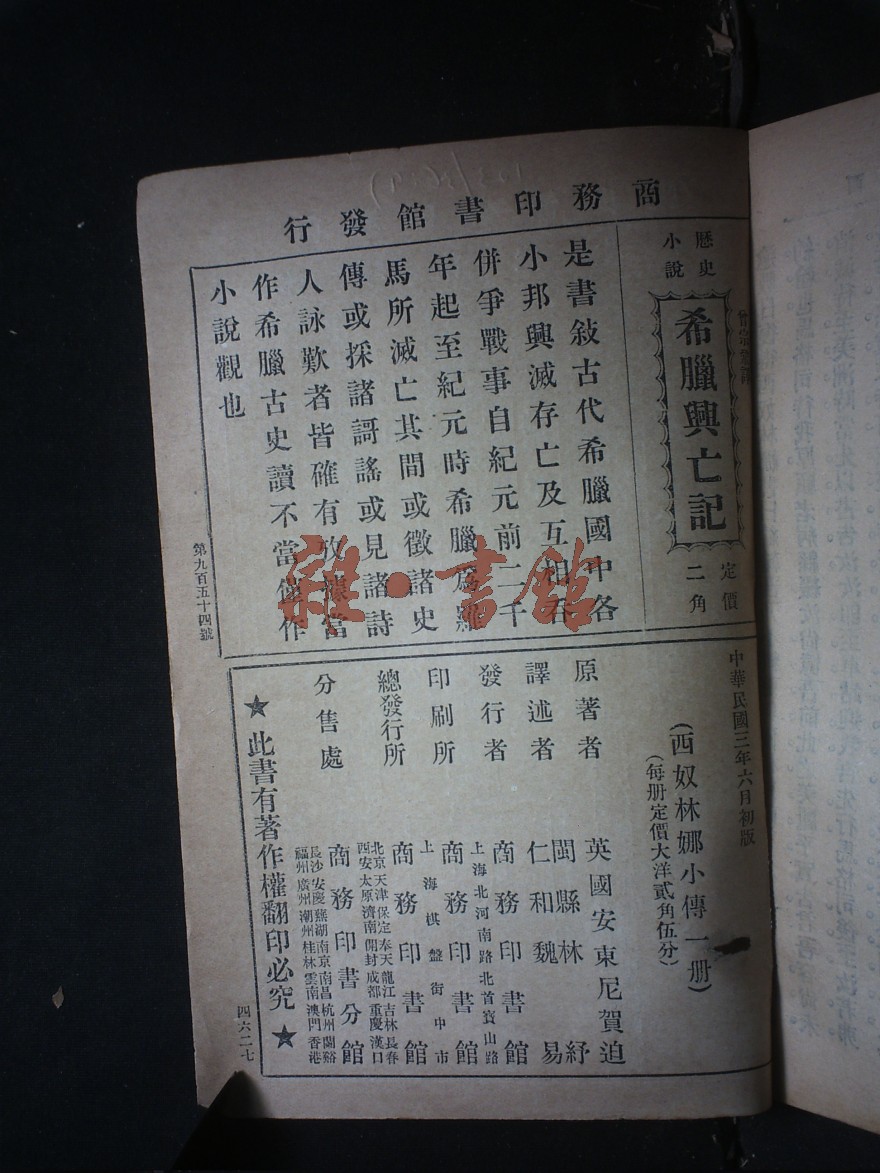 商務印書館發行
歷史
小說
希臘興亡記
定價
二角
是書敍古代希臘國中各
小邦興滅存亡及互相吞
併爭戰事自紀元前二千
年起至紀元時希臘爲羅
馬所滅亡其間或徵諸史
傳或採諸謌謠或見諸詩
人詠歎者皆確有攷據當
作希臘古史讀不當僅作
小說觀也
第九百五十四號
雜·書館
中華民國三年六月初版
(西奴林娜小傳一册)
(每册定價大洋貳角伍分)
原著者 英國安東尼賀迫
譯述者 閩縣林紓
仁和魏易
發行者 商務印書館
印刷所 上海北河南路北首寶山路
商務印書館
總發行所 上海棋盤街中市
商務印書館
分售處 北京天津保定奉天龍江吉林長春
西安太原濟南開封成都重慶漢口
商務印書分館
長沙安慶蕪湖南京南昌杭州蘭谿
福州廣州潮州桂林雲南澳門香港
★此書有著作權翻印必究★
四六二七